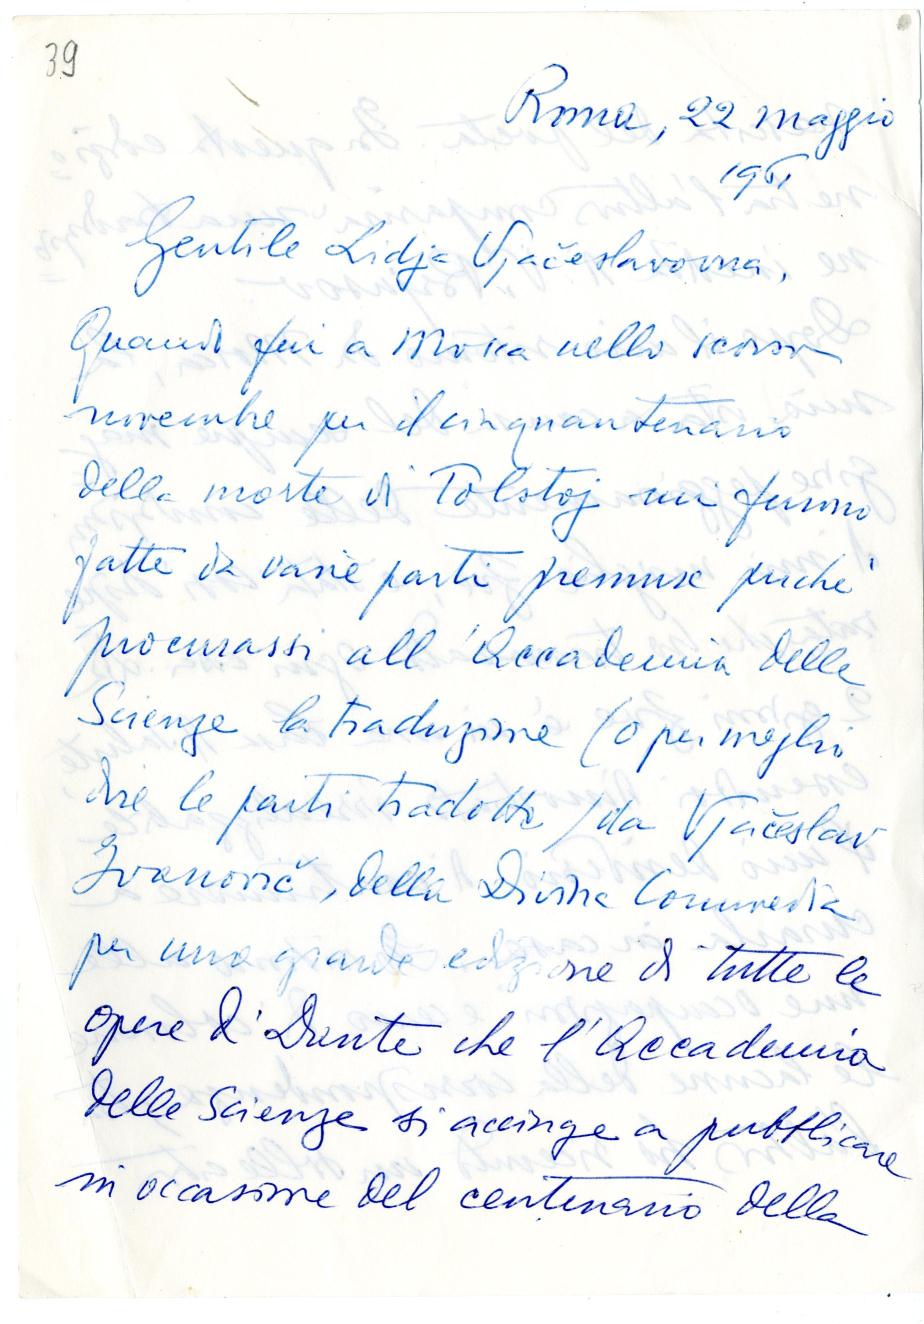 39
Roma, 22 maggio
1961
Gentile Lidja Vjačeslavovna,
Quando fui a Mosca nello scorso
novembre per il cinquantenario
della morte di Tolstoj mi furono
fatte da varie parti premure perché
procurassi all'Accademia delle
Scienze la traduzione (o per meglio
dire le parti tradotte) da Vjačeslav
Ivanovič, della Divina Commedia
per una grande edizione di tutte le
opere di Dante che l'Accademia
delle Scienze si accinge a pubblicare
in occasione del centenario della